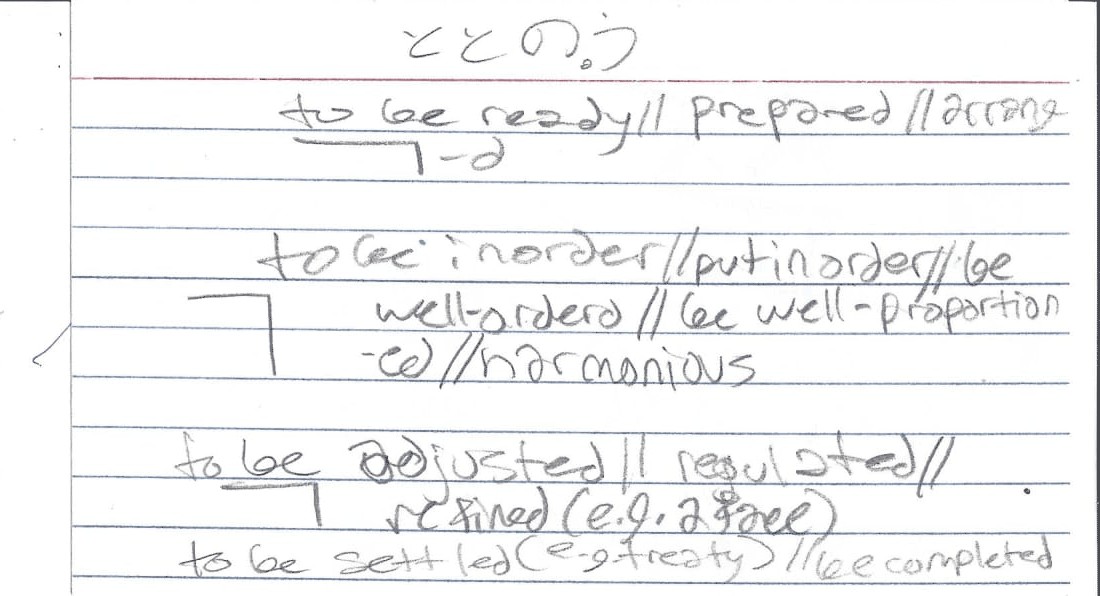 ととのう
to be ready // prepared // arrang
-d
to be in order // put in order // be
well-orderd // be well-proportion
-ed // harmonious
to be adjusted // regulated //
refined (e.g. a face)
to be settled (e-g treaty) // be completed